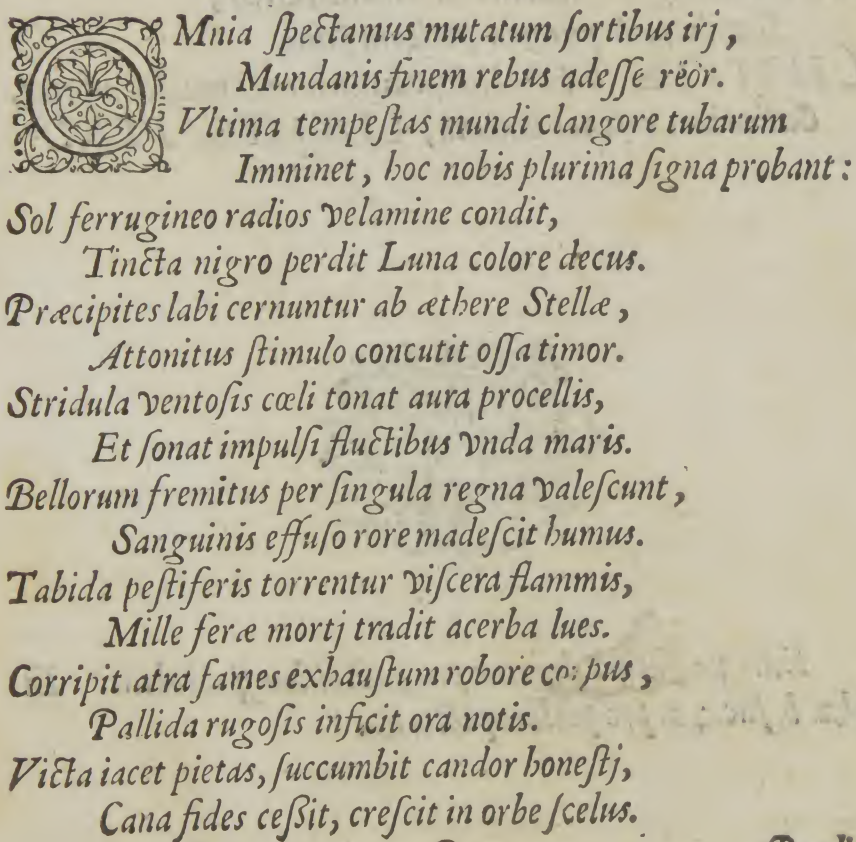 OMnia ſpectamus mutatum ſortibus irj,
Mundanis finem rebus adeſſe rëor.
Vltima tempeſtas mundi clangore tubarum
Imminet, hoc nobis plurima ſigna probant:
Sol ferrugineo radios velamine condit,
Tincta nigro perdit Luna colore decus.
Præcipites labi cernuntur ab æthere Stellæ,
Attonitus ſtimulo concutit oſſa timor.
Stridula ventoſis cœli tonat aura procellis,
Et ſonat impulſi fluctibus vnda maris.
Bellorum fremitus per ſingula regna valeſcunt,
Sanguinis effuſo rore madeſcit humus.
Tabida peſtiferis torrentur viſcera flammis,
Mille feræ mortj tradit acerba lues.
Corripit atra fames exhauſtum robore corpus,
Pallida rugoſis inficit ora notis.
Victa iacet pietas, ſuccumbit candor honeſtj,
Cana fides ceßit, creſcit in orbe ſcelus.